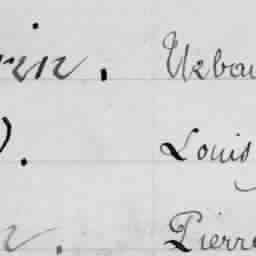 rin. Urbai
). Louis
n. Pierre